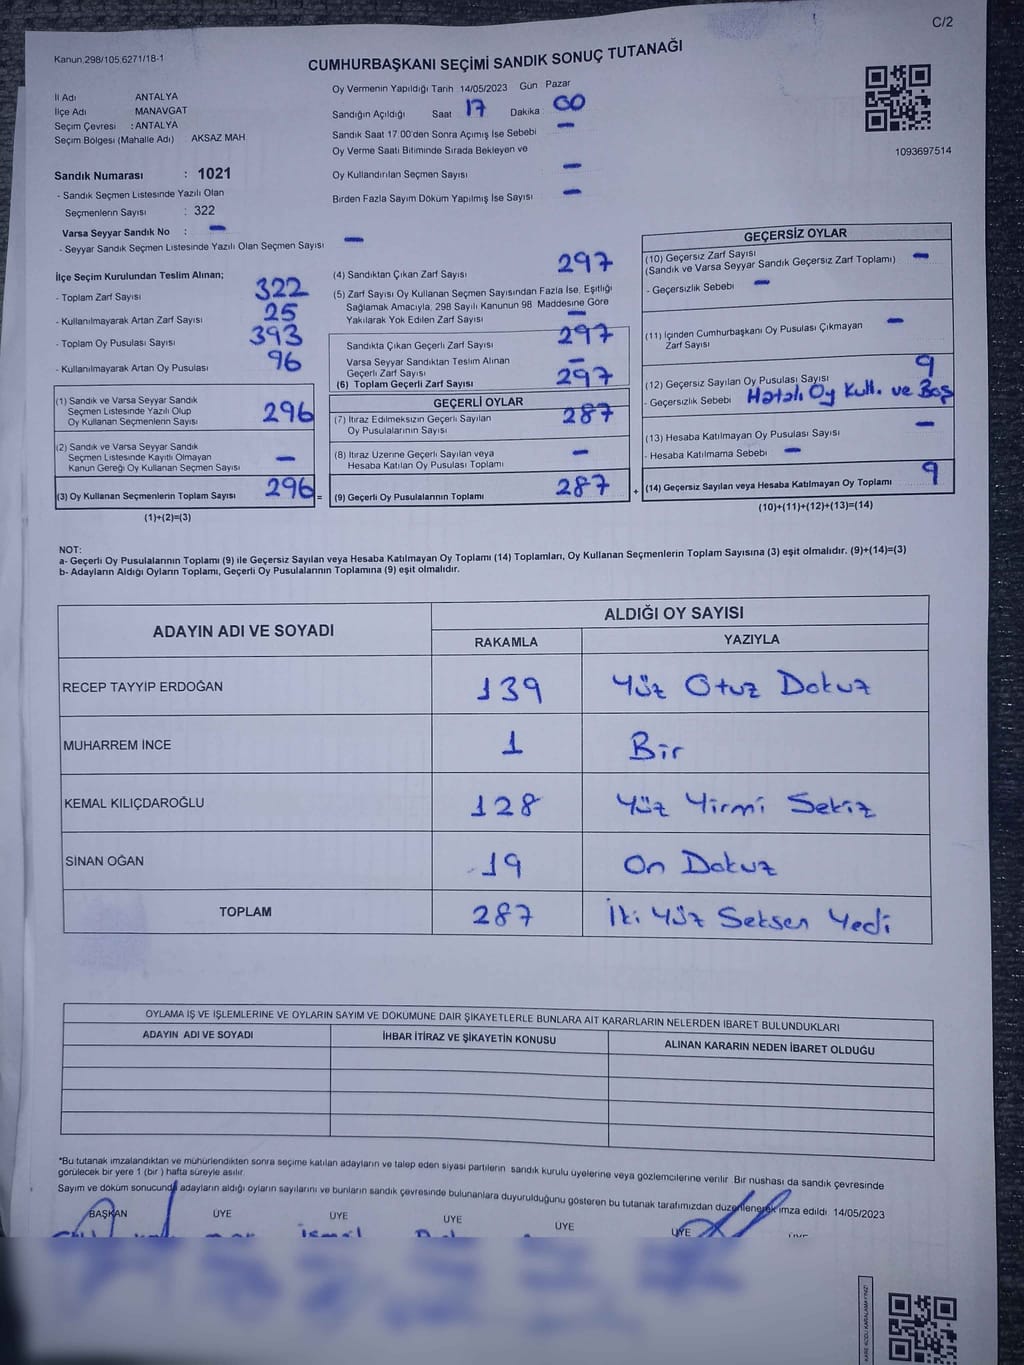 C/2
Kanun.298/105,6271/18-1
CUMHURBAŞKANI SEÇİMİ SANDIK SONUÇ TUTANAĞI
İl Adı ANTALYA
İlçe Adı MANAVGAT
Seçim Çevresi : ANTALYA
Seçim Bölgesi (Mahalle Adı) AKSAZ MAH.
Oy Vermenin Yapıldığı Tarih 14/05/2023 Gün Pazar
Sandığın Açıldığı Saat 17 Dakika 00
Sandık Saat 17:00'den Sonra Açımış İse Sebebi –
Oy Verme Saati Bitiminde Sırada Bekleyen ve
Oy Kullandırılan Seçmen Sayısı –
Birden Fazla Sayım Döküm Yapılmış İse Sayısı –
1093697514
Sandık Numarası : 1021
- Sandık Seçmen Listesinde Yazılı Olan
Seçmenlerin Sayısı : 322
Varsa Seyyar Sandık No : –
- Seyyar Sandık Seçmen Listesinde Yazılı Olan Seçmen Sayısı –
İlçe Seçim Kurulundan Teslim Alınan;
- Toplam Zarf Sayısı 322
- Kullanılmayarak Artan Zarf Sayısı 25
- Toplam Oy Pusulası Sayısı 393
- Kullanılmayarak Artan Oy Pusulası 96
(1) Sandık ve Varsa Seyyar Sandık
Seçmen Listesinde Yazılı Olup
Oy Kullanan Seçmenlerin Sayısı 296
(2) Sandık ve Varsa Seyyar Sandık
Seçmen Listesinde Kayıtlı Olmayan
Kanun Gereği Oy Kullanan Seçmen Sayısı –
(3) Oy Kullanan Seçmenlerin Toplam Sayısı 296 =
(1)+(2)=(3)
(4) Sandıktan Çıkan Zarf Sayısı 297
(5) Zarf Sayısı Oy Kullanan Seçmen Sayısından Fazla İse, Eşitliği
Sağlamak Amacıyla, 298 Sayılı Kanunun 98. Maddesine Göre
Yakılarak Yok Edilen Zarf Sayısı –
Sandıkta Çıkan Geçerli Zarf Sayısı 297
Varsa Seyyar Sandıktan Teslim Alınan
Geçerli Zarf Sayısı –
(6) Toplam Geçerli Zarf Sayısı 297
GEÇERLİ OYLAR
(7) İtiraz Edilmeksizin Geçerli Sayılan
Oy Pusulalarının Sayısı 287
(8) İtiraz Üzerine Geçerli Sayılan veya
Hesaba Katılan Oy Pusulası Toplamı –
(9) Geçerli Oy Pusulalarının Toplamı 287 +
GEÇERSİZ OYLAR
(10) Geçersiz Zarf Sayısı
(Sandık ve Varsa Seyyar Sandık Geçersiz Zarf Toplamı) –
- Geçersizlik Sebebi –
(11) İçinden Cumhurbaşkanı Oy Pusulası Çıkmayan
Zarf Sayısı –
(12) Geçersiz Sayılan Oy Pusulası Sayısı 9
- Geçersizlik Sebebi Hatalı Oy Kull. ve Boş
(13) Hesaba Katılmayan Oy Pusulası Sayısı –
- Hesaba Katılmama Sebebi –
(14) Geçersiz Sayılan veya Hesaba Katılmayan Oy Toplamı 9
(10)+(11)+(12)+(13)=(14)
NOT:
a- Geçerli Oy Pusulalarının Toplamı (9) ile Geçersiz Sayılan veya Hesaba Katılmayan Oy Toplamı (14) Toplamları, Oy Kullanan Seçmenlerin Toplam Sayısına (3) eşit olmalıdır. (9)+(14)=(3)
b- Adayların Aldığı Oyların Toplamı, Geçerli Oy Pusulalarının Toplamına (9) eşit olmalıdır.
ADAYIN ADI VE SOYADI ALDIĞI OY SAYISI
RAKAMLA YAZIYLA
RECEP TAYYİP ERDOĞAN 139 Yüz Otuz Dokuz
MUHARREM İNCE 1 Bir
KEMAL KILIÇDAROĞLU 128 Yüz Yirmi Sekiz
SİNAN OĞAN 19 On Dokuz
TOPLAM 287 İki Yüz Seksen Yedi
OYLAMA İŞ VE İŞLEMLERİNE VE OYLARIN SAYIM VE DÖKÜMÜNE DAİR ŞİKAYETLERLE BUNLARA AİT KARARLARIN NELERDEN İBARET BULUNDUKLARI
ADAYIN ADI VE SOYADI İHBAR İTİRAZ VE ŞİKAYETİN KONUSU ALINAN KARARIN NEDEN İBARET OLDUĞU
*Bu tutanak imzalandıktan ve mühürlendikten sonra seçime katılan adayların ve talep eden siyasi partilerin sandık kurulu üyelerine veya gözlemcilerine verilir. Bir nüshası da sandık çevresinde
görülecek bir yere 1 (bir ) hafta süreyle asılır.
Sayım ve döküm sonucunda adayların aldığı oyların sayılarını ve bunların sandık çevresinde bulunanlara duyurulduğunu gösteren bu tutanak tarafımızdan düzenlenerek imza edildi. 14/05/2023
BAŞKAN ÜYE ÜYE ÜYE ÜYE ÜYE
İsmail